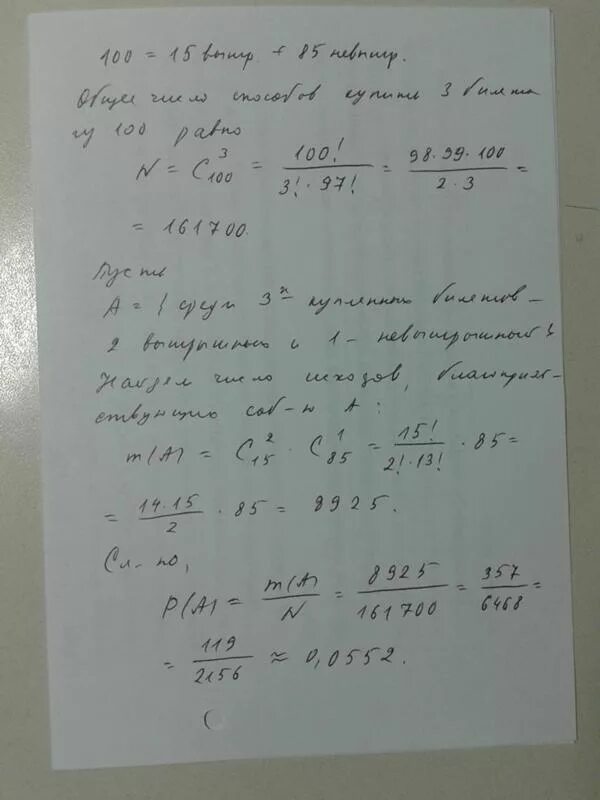 100 = 15 выигр. + 85 невыигр.
Общее число способов купить 3 билета
из 100 равно
N = C₁₀₀³ = 100! / (3! · 97!) = (98 · 99 · 100) / (2 · 3) =
= 161700.
Пусть
A = { среди 3х купленных билетов –
2 выигрышных и 1 – невыигрышный }
Найдем число исходов, благоприят-
ствующих соб-ю A :
m(A) = C₁₅² · C₈₅¹ = 15! / (2! · 13!) · 85 =
= (14 · 15) / 2 · 85 = 8925.
Сл-но,
P(A) = m(A) / N = 8925 / 161700 = 357 / 6468 =
= 119 / 2156 ≈ 0,0552.